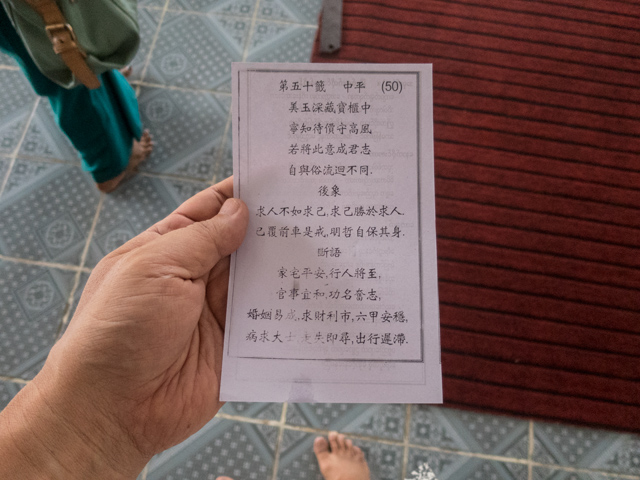 第五十籤 中平 (50)
美玉深藏寶櫃中
寧知待價守高風
若將此意成君志
自與俗流迥不同.
後象
求人不如求己,求己勝於求人.
已覆前車是戒,明哲自保其身.
斷語
家宅平安,行人將至,
官事宜和,功名奮志,
婚姻易成,求財利市,六甲安穩,
病求大士,失即尋,出行遲滯.